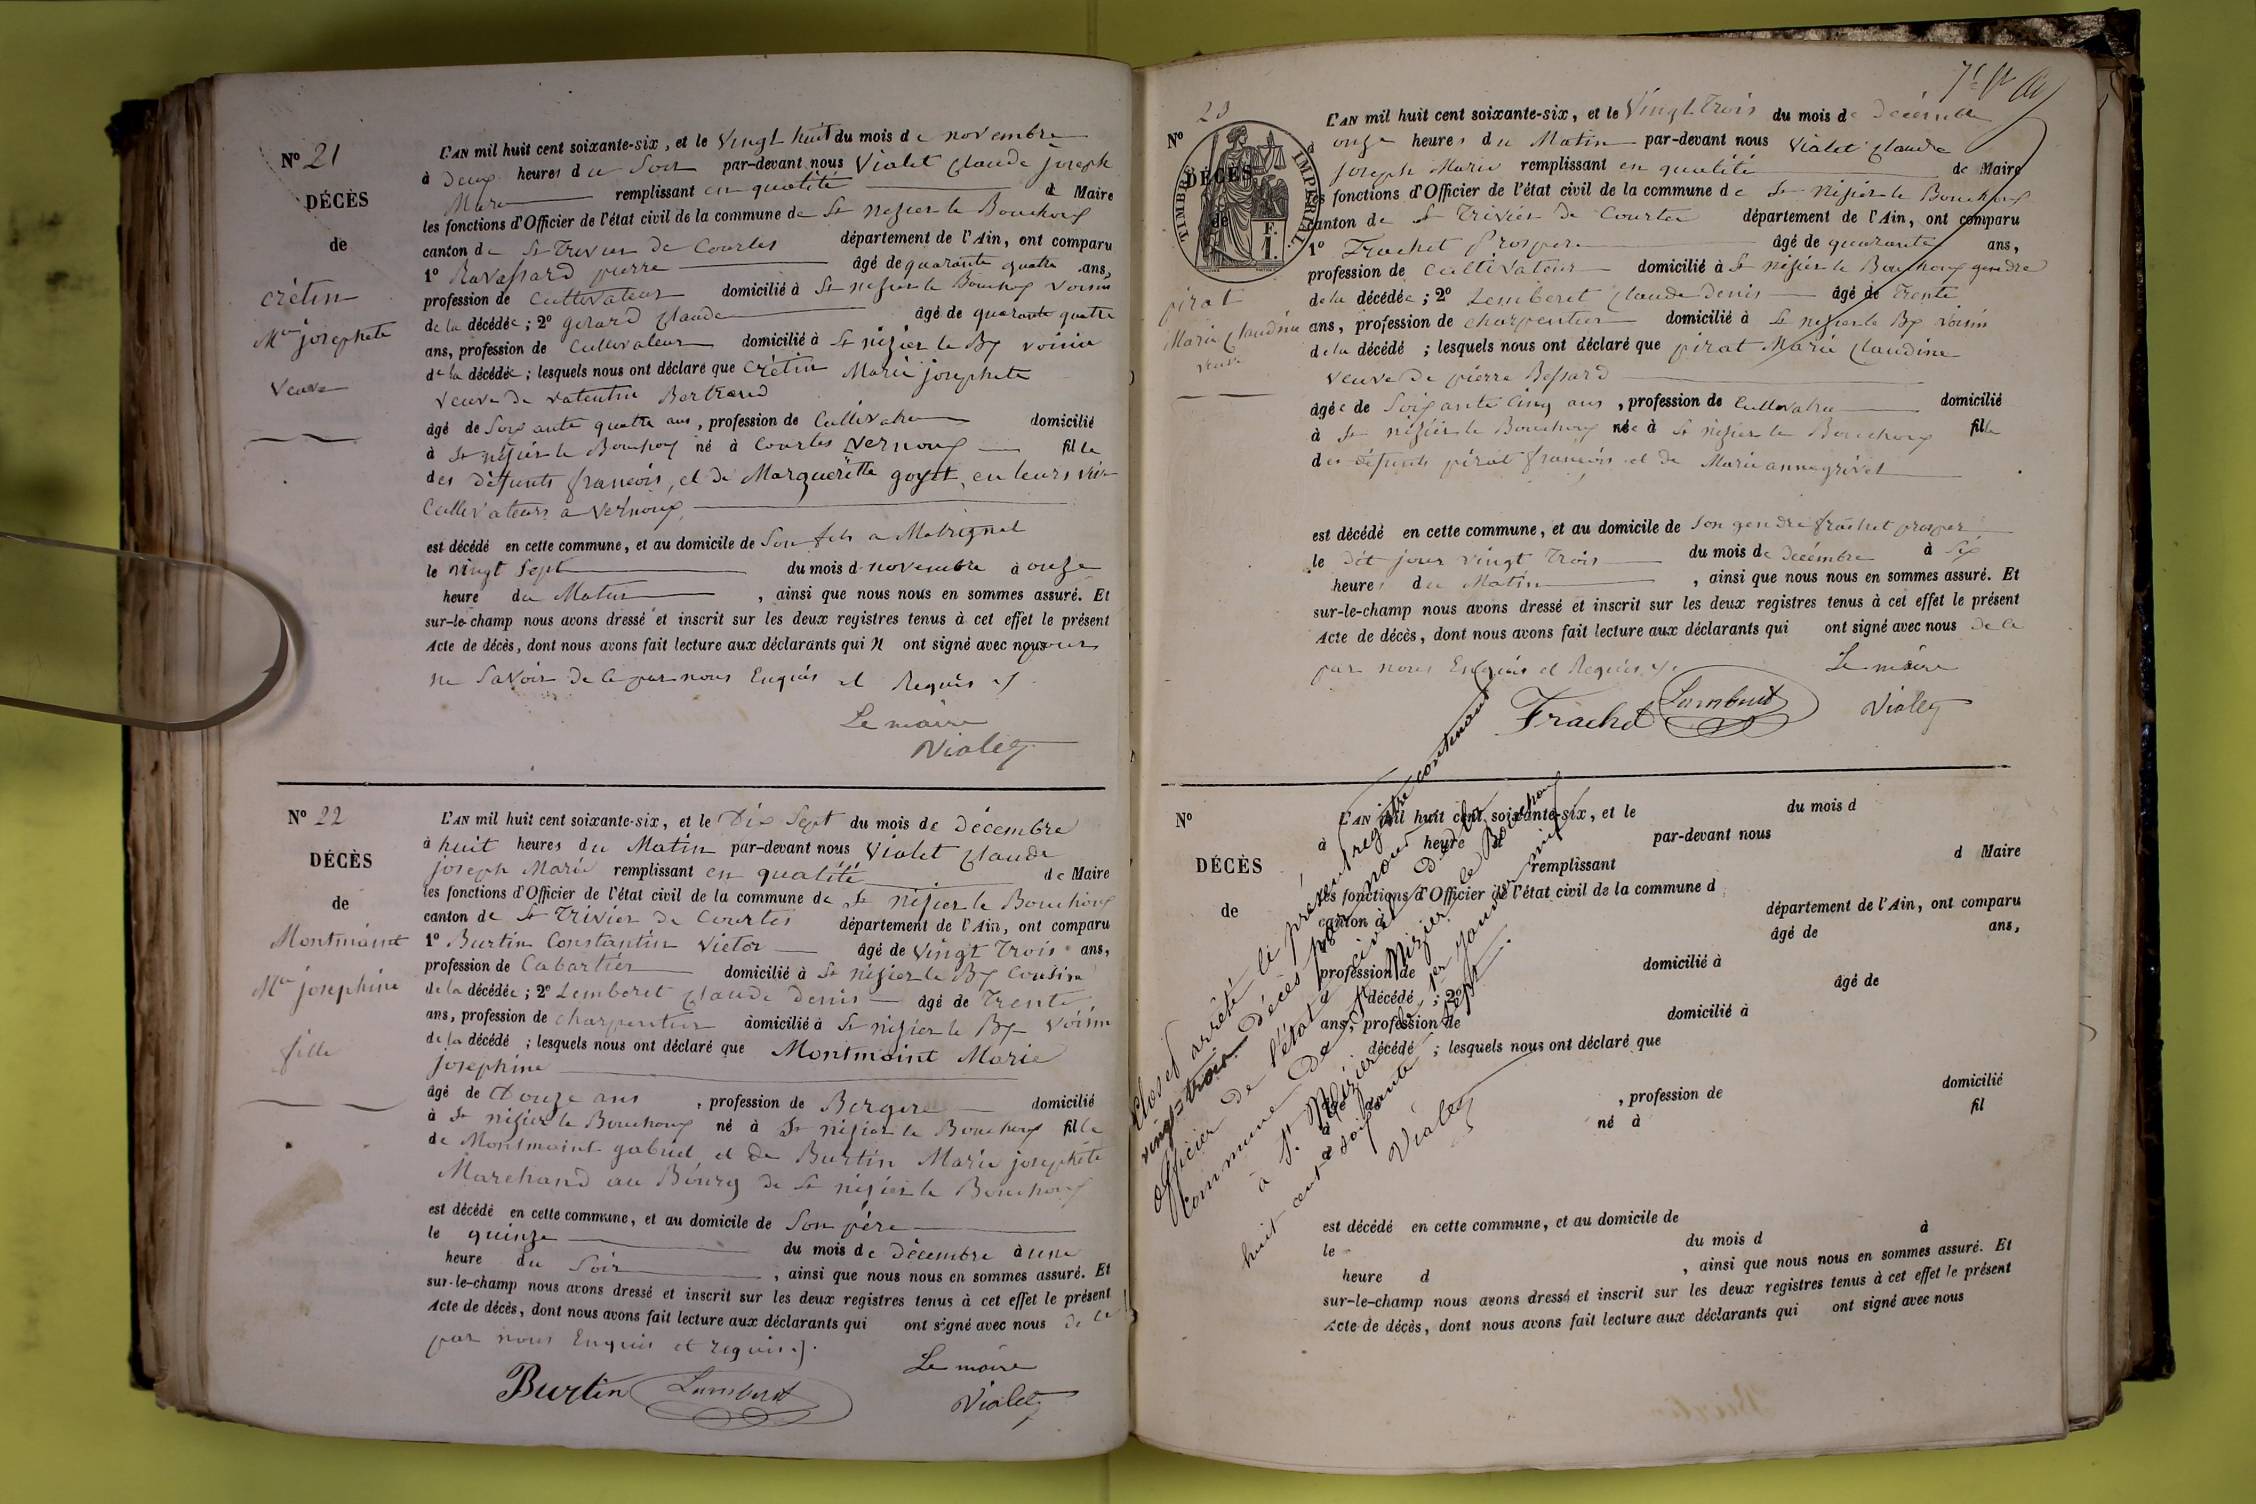 N° 21
DÉCÈS
de
Crétin
Mie josephete
Veuve
L'AN mil huit cent soixante-six, et le Vingt huit du mois de novembre
à Deux heures du Soir par-devant nous Violet Claude joseph
Marie remplissant en qualité d Maire
les fonctions d'Officier de l'état civil de la commune de St nizier le Bouchoux
canton de St Trivier de Courtes département de l'Ain, ont comparu
1° Ravassard pierre âgé de quarante quatre ans,
profession de Cultivateur domicilié à St nizier le Bouchoux voisin
de la décédée ; 2° gerard Claude âgé de quarante quatre
ans, profession de Cultivateur domicilié à St nizier le Bx voisin
de la décédée ; lesquels nous ont déclaré que Crétin Marie josephete
veuve de valentin Bertrand
âgé de Soixante quatre ans, profession de Cultivatrice domicilié
à St nizier le Bouchoux né à Courtes Vernoux fille
des défunts francois, et de Margueritte goyet, en leurs vi
Cultivateurs a Vernoux,
est décédé en cette commune, et au domicile de Son fils a Matrignat
le vingt Sept du mois d novembre à onze
heure du Matin , ainsi que nous nous en sommes assuré. Et
sur-le-champ nous avons dressé et inscrit sur les deux registres tenus à cet effet le présent
Acte de décès, dont nous avons fait lecture aux déclarants qui n ont signé avec nous pour
ne Savoir de ce par nous Enquis et Requis
Le maire
Violet
N° 22
DÉCÈS
de
Montmaint
Mie josephine
fille
L'AN mil huit cent soixante-six, et le Dix Sept du mois de Décembre
à huit heures du Matin par-devant nous Violet Claude
joseph Marie remplissant en qualité de Maire
les fonctions d'Officier de l'état civil de la commune de St nizier le Bouchoux
canton de St Trivier de Courtes département de l'Ain, ont comparu
1° Burtin Constantin Victor âgé de Vingt Trois ans,
profession de Cabartier domicilié à St nizier le Bx Cousin
de la décédée ; 2° Lemberet Claude Denis âgé de Trente
ans, profession de charpentier domicilié à St nizier le Bx Voisin
de la décédé ; lesquels nous ont déclaré que Montmaint Marie
josephine
âgé de Douze ans , profession de Bergere domicilié
à St nizier le Bouchoux né à St nizier le Bouchoux fille
de Montmaint gabriel et de Burtin Marie josephete
Marchand au Bourg de St nizier le Bouchoux
est décédé en cette commune, et au domicile de Son père
le quinze du mois de Décembre à une
heure du Soir , ainsi que nous nous en sommes assuré. Et
sur-le-champ nous avons dressé et inscrit sur les deux registres tenus à cet effet le présent
Acte de décès, dont nous avons fait lecture aux déclarants qui ont signé avec nous de ce
par nous Enquis et requis.
Le maire
Burtin Lemberet Violet
23
N°
DÉCÈS
de
TIMBRE IMPÉRIAL
F.
1.
pirat
Marie Claudine
veuve
L'AN mil huit cent soixante-six, et le Vingt Trois du mois de Décembre
à onze heures du Matin par-devant nous Violet Claude
joseph Marie remplissant en qualité de Maire
les fonctions d'Officier de l'état civil de la commune de St nizier le Bouchoux
canton de St Trivier de Courtes département de l'Ain, ont comparu
1° Frachet Prosper âgé de quarante ans,
profession de Cultivateur domicilié à St nizier le Bouchoux gendre
de la décédée ; 2° Lemberet Claude Denis âgé de Trente
ans, profession de charpentier domicilié à St nizier le Bx voisin
de la décédé ; lesquels nous ont déclaré que pirat Marie Claudine
veuve de pierre Bessard
âgée de Soixante Cinq ans , profession de Cultivatrice domicilié
à St nizier le Bouchoux née à St nizier le Bouchoux fille
des défunts pirat francois et de Marie anne grivet
est décédé en cette commune, et au domicile de Son gendre frachet prosper
le dit jour vingt Trois du mois de Décembre à Six
heures du Matin , ainsi que nous nous en sommes assuré. Et
sur-le-champ nous avons dressé et inscrit sur les deux registres tenus à cet effet le présent
Acte de décès, dont nous avons fait lecture aux déclarants qui ont signé avec nous de ce
par nous Enquis et Requis
Le maire
Frachet Lemberet Violet
N°
DÉCÈS
de
L'AN mil huit cent soixante-six, et le du mois d
à heure d par-devant nous
remplissant d Maire
les fonctions d'Officier de l'état civil de la commune d
canton d département de l'Ain, ont comparu
âgé de ans,
profession de domicilié à
décédé ; 2° âgé de
ans, profession de domicilié à
décédé ; lesquels nous ont déclaré que
âgé de , profession de domicilié
à né à fil
est décédé en cette commune, et au domicile de
le du mois d à
heure d , ainsi que nous nous en sommes assuré. Et
sur-le-champ nous avons dressé et inscrit sur les deux registres tenus à cet effet le présent
Acte de décès, dont nous avons fait lecture aux déclarants qui ont signé avec nous
Clos et arrêté le présent registre contenant
vingt-trois décès par nous Maire
officier de l'état civil de la
Commune de St Nizier le Bouchoux
à St Nizier le 1er janvier mil
huit cent soixante sept.
Violet